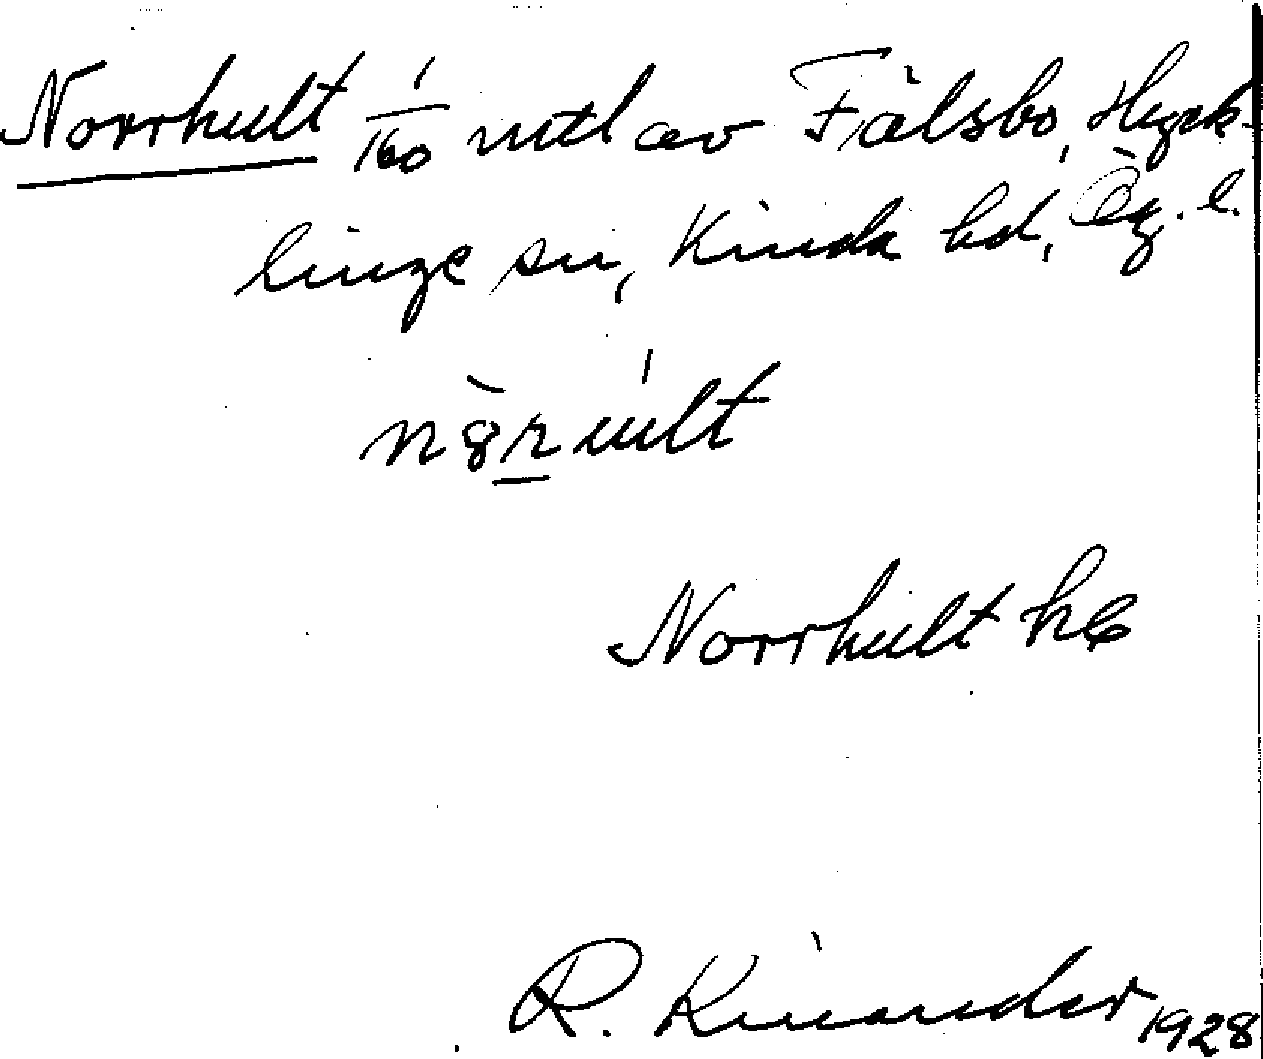 Norrhult 1/160 mtl av Fålsbo, Hyck-
linge sn, Kinda hd, Ög. l.
Norrhult hs
R. Kinander 1928